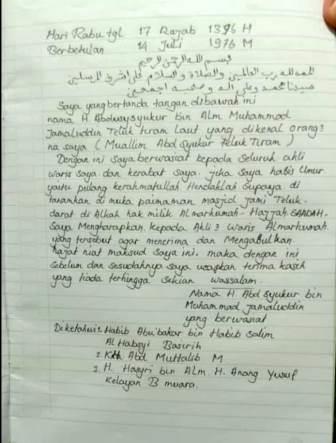 Hari Rabu tgl 17 Rajab 1396 H
Berbetulan 14 Juli 1976 M
بسم الله الرحمن الرحيم
الحمد لله رب العالمين والصلاة والسلام على اشرف المرسلين
سيدنا محمد وعلى اله وصحبه اجمعين
Saya yang bertanda tangan dibawah ini
nama H Abdusysyukur bin Alm Muhammad
Jamaluddin Teluk tiram Laut yang dikenal orang2
na saya ( Muallim Abd Syukur Teluk Tiram )
Dengan ini Saya berwasiat kepada Seluruh ahli
waris saya dan kerabat saya. jika Saya habis Umur
yaitu pulang kerahmatullah Hendaklah Supaya di
tanamkan di muka paimaman masjid jami Teluk
darat di Alkah hak milik Almarhumah Hajjah SAADAH.
Saya Mengharapkan kepada Ahli2 Waris Almarhumah
yang tersebut agar menerima dan Mengabulkan
hajat niat maksud Saya ini. maka dengan ini
Sebelum dan Sesudahnya Saya ucapkan terima kasih
yang tiada terhingga. Sekian wassalam.
Nama H Abd Syukur bin
Muhammad Jamaluddin
yang berwasiat
Diketahui: Habib Abu bakar bin Habib Salim
Al Habsyi Basirih
2. Abd Muttalib M
3. H. Hasyri bin Alm H. Anang Yusuf
Kelayan B muara.